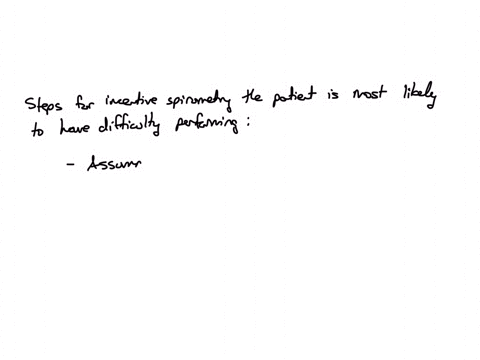 Steps for incentive spirometry the patient is most likely
to have difficulty performing:
- Assum